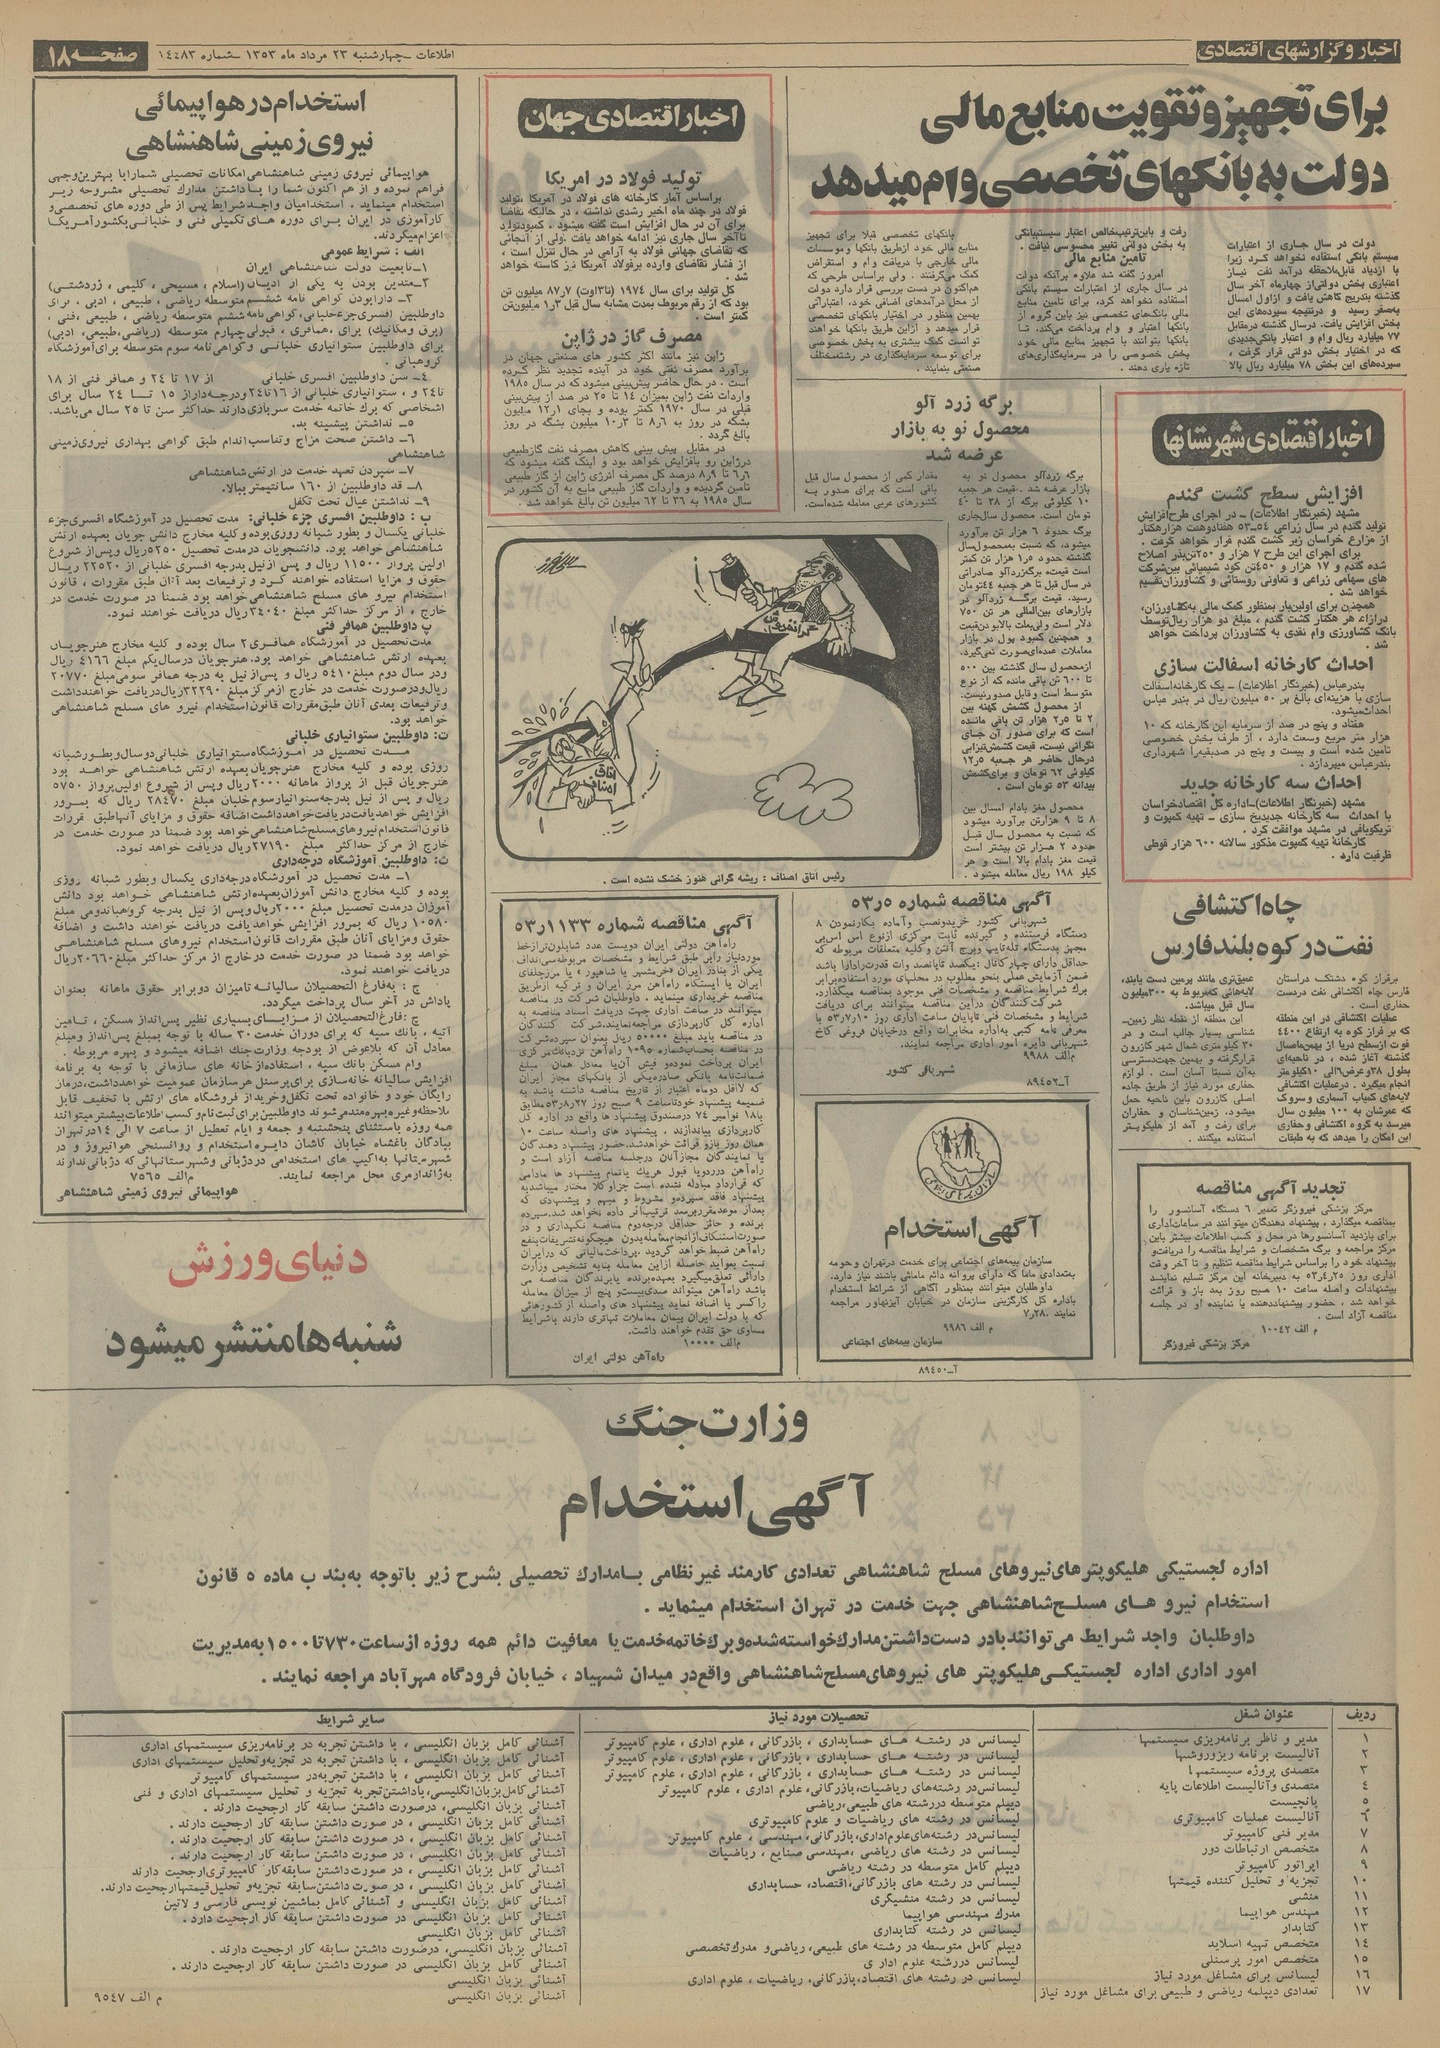 اخبار و گزارشهای اقتصادی
اطلاعات ـ چهارشنبه ۲۳ مرداد ماه ۱۳۵۳ ـ شماره ۱۴۴۸۳
صفحه ۱۸
برای تجهیز و تقویت منابع مالی
دولت به بانکهای تخصصی وام میدهد
دولت در سال جاری از اعتبارات
سیستم بانکی استفاده نخواهد کرد زیرا
با ازدیاد قابل‌ملاحظه درآمد نفت نیاز
اعتباری بخش دولتی‌از چهارماه آخر سال
گذشته بتدریج کاهش یافت و ازاول امسال
به‌صفر رسید و درنتیجه سپرده‌های این
بخش افزایش یافت. درسال گذشته درمقابل
۷۷ میلیارد ریال وام و اعتبار بانکی‌جدیدی
که در اختیار بخش دولتی قرار گرفت ،
سپرده‌های این بخش ۷۸ میلیارد ریال بالا
رفت و باین‌ترتیب‌خالص اعتبار سیستم‌بانکی
به بخش دولتی تغییر محسوسی نیافت .
تامین منابع مالی
امروز گفته شد علاوه برآنکه دولت
در سال جاری از اعتبارات سیستم بانکی
استفاده نخواهد کرد، برای تامین منابع
مالی بانک‌های تخصصی نیز باین گروه از
بانکها اعتبار و وام پرداخت می‌کند، تا
بانکها بتوانند با تجهیز منابع مالی خود
بخش خصوصی را در سرمایه‌گذاری‌های
تازه یاری دهند .
بانکهای تخصصی قبلا برای تجهیز
منابع مالی خود ازطریق بانکها وموسسات
مالی خارجی با دریافت وام و استقراض
کمک می‌گرفتند . ولی براساس طرحی که
هم‌اکنون در دست بررسی قرار دارد دولت
از محل درآمدهای اضافی خود، اعتباراتی
بهمین منظور در اختیار بانکهای تخصصی
قرار میدهد و ازاین طریق بانکها خواهند
توانست کمک بیشتری به بخش خصوصی
برای توسعه سرمایه‌گذاری در رشته‌مختلف
صنعتی بنمایند .
اخبار اقتصادی شهرستانها
افزایش سطح کشت گندم
مشهد (خبرنگار اطلاعات) ـ در اجرای طرح‌افزایش
تولید گندم در سال زراعی ۵۴ـ۵۳ هفتادوهشت هزارهکتار
از مزارع خراسان زیر کشت گندم قرار خواهد گرفت .
برای اجرای این طرح ۷ هزار و ۲۵۰تن‌بذر اصلاح
شده گندم و ۱۷ هزار و ۴۵۰تن کود شیمیائی بین‌شرکت
های سهامی زراعی و تعاونی روستائی و کشاورزان‌تقسیم
خواهد شد .
همچنین برای اولین‌بار بمنظور کمک مالی به‌کشاورزان،
درازاء هر هکتار کشت گندم ، مبلغ دو هزار ریال‌توسط
بانک کشاورزی وام نقدی به کشاورزان پرداخت خواهد
شد .
احداث کارخانه اسفالت سازی
بندرعباس (خبرنگار اطلاعات) ـ یک کارخانه‌اسفالت
سازی با هزینه‌ای بالغ بر ۵۰ میلیون ریال در بندر عباس
احداث‌میشود.
هفتاد و پنج در صد از سرمایه این کارخانه که ۱۰
هزار متر مربع وسعت دارد ، از طرف بخش خصوصی
تامین شده است و بیست و پنج در صدبقیه‌را شهرداری
بندرعباس میپردازد .
احداث سه کارخانه جدید
مشهد (خبرنگار اطلاعات)ـاداره کل اقتصادخراسان
با احداث سه کارخانه جدیدیخ سازی ـ تهیه کمپوت و
تریکوبافی در مشهد موافقت کرد .
کارخانه تهیه کمپوت مذکور سالانه ۶۰۰ هزار قوطی
ظرفیت دارد .
برگه زرد آلو
محصول نو به بازار
عرضه شد
برگه زردآلو محصول نو به
بازار عرضه شد .ـقیمت هر جعبه
۱۰ کیلوئی برگه از ۳۸ تا ۴۰
تومان است. محصول سال‌جاری
برگ حدود ۶ هزار تن برآورد
میشود، که نسبت به‌محصول‌سال
گذشته حدود ۱ر۵ هزار تن کمتر
است قیمت، برگه‌زردآلو صادراتی
در سال قبل تا هر جعبه ۴۴تومان
رسید. قیمت برگه زردآلو در
بازارهای بین‌المللی هر تن ۷۵۰
دلار است ولی‌بعلت بالابودن‌قیمت
و همچنین کمبود پول در بازار
معاملات عمده‌ای‌صورت نمی‌گیرد.
ازمحصول سال گذشته بین ۵۰۰
تا ۶۰۰ تن باقی مانده که از نوع
متوسط است وقابل صدورنیست.
از محصول کشمش کهنه بین
۲ تا ۲ر۵ هزار تن باقی مانده
است که برای صدور آن جای
نگرانی نیست، قیمت کشمش‌تیزابی
درحال حاضر هر جعبه ۱۲ر۵
کیلوئی ۶۲ تومان و برای‌کشمش
بیدانه ۵۳ تومان است .
محصول مغز بادام امسال بین
۸ تا ۹ هزارتن برآورد میشود
که نسبت به محصول سال قبل
حدود ۲ هزار تن بیشتر است
قیمت مغز بادام بالا است و هر
کیلو ۱۹۸ ریال معامله میشود .
مقدار کمی از محصول سال قبل
باقی است که برای صدور به
کشورهای عربی معامله شده‌است.
اخبار اقتصادی جهان
تولید فولاد در امریکا
براساس آمار کارخانه های فولاد در آمریکا ،تولید
فولاد در چند ماه اخیر رشدی نداشته ، در حالیکه تقاضا
برای آن در حال افزایش است گفته میشود . کمبودتولید
تاآخر سال جاری نیز ادامه خواهد یافت .ولی از آنجائی
که تقاضای جهانی فولاد به آرامی در حال تنزل است ،
از فشار تقاضای وارده برفولاد آمریکا نیز کاسته خواهد
شد .
کل تولید برای سال ۱۹۷۴ (تااوت) ۸۷ر۷ میلیون تن
بود که از رقم مربوط بمدت مشابه سال قبل ۱ر۳ میلیون‌تن
کمتر است .
مصرف گاز در ژاپن
ژاپن نیز مانند اکثر کشور های صنعتی جهان در
برآورد مصرف نفتی خود در آینده تجدید نظر کرده
است . در حال حاضر پیش‌بینی میشود که در سال ۱۹۸۵
واردات نفت ژاپن بمیزان ۱۴ تا ۲۵ در صد از پیش‌بینی
قبلی در سال ۱۹۷۰ کمتر بوده و بجای ۱۲ر۱ میلیون
بشکه در روز به ۸ر۶ تا ۱۰ر۳ میلیون بشکه در روز
بالغ گردد .
در مقابل پیش بینی کاهش مصرف نفت گازطبیعی
درژاپن رو بافزایش خواهد بود و اینک گفته میشود که
۶ر۱ تا ۸ر۹ درصد کل مصرف انرژی ژاپن از گاز طبیعی
تامین گردیده و واردات گاز طبیعی مایع به آن کشور در
سال ۱۹۸۵ به ۳۶ تا ۶۲ میلیون تن بالغ خواهد شد .
گرانفروش
اتاق اصناف
رئیس اتاق اصناف : ریشه گرانی هنوز خشک نشده است .
استخدام در هواپیمائی
نیروی زمینی شاهنشاهی
هواپیمائی نیروی زمینی شاهنشاهی امکانات تحصیلی شمارابا بهترین‌وجهی
فراهم نموده و از هم اکنون شما را باداشتن مدارک تحصیلی مشروحه زیر
استخدام مینماید . استخدامیان واجد شرایط پس از طی دوره های تخصصی‌و
کارآموزی در ایران برای دوره های تکمیلی فنی و خلبانی بکشورآمریکا
اعزام‌میگردند.
الف : شرایط عمومی
۱ـ تابعیت دولت شاهنشاهی ایران
۲ـ متدین بودن به یکی از ادیان(اسلام ، مسیحی ، کلیمی ، زردشتی)
۳ـ دارابودن گواهی نامه ششم متوسطه ریاضی ، طبیعی ، ادبی ، برای
داوطلبین افسری جزءخلبانی، گواهی‌نامه ششم متوسطه ریاضی ، طبیعی ،فنی ،
(برق ومکانیک) برای ، همافری ، قبولی چهارم متوسطه (ریاضی،طبیعی، ادبی)
برای داوطلبین ستوانیاری خلبانی ـ وگواهی‌نامه سوم متوسطه برای‌آموزشگاه
گروهبانی .
۴ـ سن داوطلبین افسری خلبانی از ۱۷ تا ۲۴ و همافر فنی از ۱۸
تا۲۴ و ، ستوانیاری خلبانی از ۱۶تا۲۴ ودرجه‌داراز ۱۵ تا ۲۴ سال برای
اشخاصی که برک خاتمه خدمت سربازی‌دارند حداکثر سن تا ۲۵ سال می‌باشد.
۵ـ نداشتن پیشینه بد.
۶ـ داشتن صحت مزاج وتناسب‌اندام طبق گواهی بهداری نیروی‌زمینی
شاهنشاهی
۷ـ سپردن تعهد خدمت در ارتش شاهنشاهی
۸ـ قد داوطلبین از ۱۶۰ سانتیمتر ببالا.
۹ـ نداشتن عیال تحت تکفل
ب : داوطلبین افسری جزء خلبانی: مدت تحصیل در آموزشگاه افسری‌جزء
خلبانی یکسال و بطور شبانه روزی بوده و کلیه مخارج دانش جویان بعهده ارتش
شاهنشاهی خواهد بود. دانشجویان درمدت تحصیل ۵۲۵۰ریال وپس ازشروع
اولین پرواز ۱۱۵۰۰ ریال و پس ازنیل بدرجه افسری خلبانی از ۲۲۵۲۰ ریال
حقوق و مزایا استفاده خواهند کرد و ترفیعات بعد آنان طبق مقررات ، قانون
استخدام نیرو های مسلح شاهنشاهی‌خواهد بود ضمنا در صورت خدمت در
خارج ، از مرکز حداکثر مبلغ ۳۴۰۴۰ ریال دریافت خواهند نمود.
پ داوطلبین همافر فنی
مدت‌تحصیل در آموزشگاه همافری ۲ سال بوده و کلیه مخارج هنرجویان
بعهده ارتش شاهنشاهی خواهد بود. هنرجویان درسال‌یکم مبلغ ۴۱۶۶ ریال
ودر سال دوم مبلغ۵۴۱۰ ریال و پس‌از نیل به درجه همافر سومی‌مبلغ ۲۰۷۷۰
ریال‌ودرصورت خدمت در خارج ازمرکز مبلغ ۳۲۲۹۰ریال‌دریافت خواهندداشت
وترفیعات بعدی آنان طبق‌مقررات قانون‌استخدام نیرو های مسلح شاهنشاهی
خواهد بود.
ت: داوطلبین ستوانیاری خلبانی
مدت تحصیل در آموزشگاه‌ستوانیاری خلبانی‌دوسال‌وبطورشبانه
روزی بوده و کلیه مخارج هنرجویان‌بعهده ارتش شاهنشاهی خواهد بود
هنرجویان قبل از پرواز ماهانه ۲۰۰۰ ریال وپس از شروع اولین‌پرواز ۵۷۵۰
ریال و پس از نیل بدرجه ستوانیارسوم خلبان مبلغ ۲۸۴۷۰ ریال که بمرور
افزایش خواهدیافت‌دریافت‌خواهدداشت‌اضافه حقوق و مزایای آنهاطبق مقررات
قانون‌استخدام نیروهای‌مسلح‌شاهنشاهی‌خواهد بود ضمنا در صورت خدمت در
خارج از مرکز حداکثر مبلغ ۲۷۱۹۰ریال دریافت خواهد نمود.
ث: داوطلبین آموزشگاه درجه‌داری
۱ـ مدت تحصیل در آموزشگاه درجه‌داری یکسال وبطور شبانه روزی
بوده و کلیه مخارج دانش آموزان‌بعهده‌ارتش شاهنشاهی خواهد بود دانش
آموزان درمدت تحصیل مبلغ ۲۰۰۰ریال‌وپس از نیل بدرجه گروهباندومی مبلغ
۱۰۵۸۰ ریال که بمرور افزایش خواهدیافت دریافت خواهند داشت و اضافه
حقوق ومزایای آنان طبق مقررات قانون‌استخدام نیروهای مسلح شاهنشاهی
خواهد بود ضمنا در صورت خدمت درخارج از مرکز حداکثر مبلغ ۲۰۶۶۰ریال
دریافت خواهند نمود.
ج : به‌فارغ التحصیلان سالیانه تامیزان دوبرابر حقوق ماهانه بعنوان
پاداش در آخر سال پرداخت میگردد.
چ :فارغ‌التحصیلان از مزایای‌بسیاری نظیر پس‌انداز مسکن ، تامین
آتیه ، بانک سپه که برای دوران خدمت ۳۰ ساله با توجه بمبلغ پس‌انداز ومبلغ
معادل آن که بلاعوض از بودجه وزارت‌جنک اضافه میشود و بهره مربوطه .
وام مسکن بانک سپه ، استفاده‌ازخانه های سازمانی با توجه به برنامه
افزایش سالیانه خانه‌سازی برای‌پرسنل هرسازمان عمومیت خواهدداشت،درمان
رایگان خود و خانواده تحت تکفل‌وخریداز فروشگاه های ارتش با تخفیف قابل
ملاحظه‌وغیره‌بهره‌مندمی‌شوند داوطلبین‌برای‌ثبت‌نام‌وکسب‌اطلاعات‌بیشترمیتوانند
همه روزه باستثنای پنجشنبه و جمعه و ایام تعطیل از ساعت ۷ الی ۱۴درتهران
بپادگان باغشاه خیابان کاشان دایره استخدام و روانسنجی هوانیروز و در
شهرستانها به‌اکیپ های استخدامی دردژبانی وشهرستانهائی که دژبانی‌ندارند
به‌ژاندارمری محل مراجعه نمایند. م‌الف ۷۵۶۵
هواپیمائی نیروی زمینی شاهنشاهی
دنیای ورزش
شنبه‌ها منتشر میشود
چاه اکتشافی
نفت در کوه بلند فارس
برفراز کوه دشتک دراستان
فارس چاه اکتشافی نفت دردست
حفاری است .
عملیات اکتشافی در این منطقه
که بر فراز کوه به ارتفاع ۴۴۰۰
فوت ازسطح دریا از بهمن‌ماه‌سال
گذشته آغاز شده ، در ناحیه‌ای
بطول ۳۸وعرض۶الی ۱۰کیلومتر
انجام میگیرد . درعملیات اکتشافی
لایه‌های کنیاب آسماری وسروک
که عمرشان به ۱۰۰ میلیون سال
میرسد به گروه اکتشافی وحفاری
این امکان را میدهد که به طبقات
عمیق‌تری مانند پرمین دست یابند،
لایه‌هائی که‌مربوط به ۳۰۰میلیون
سال قبل میباشد.
این منطقه از نقطه نظر زمین‌ـ
شناسی بسیار جالب است و در
۳۰ کیلومتری شمال شهر کازرون
قرارگرفته و بهمین جهت‌دسترسی
به‌آن نسبتا آسان است . لوازم
حفاری مورد نیاز از طریق جاده
اصلی کازرون باین ناحیه حمل
میشود، زمین‌شناسان و حفاران
برای رفت و آمد از هلیکوپتر
استفاده میکنند .
تجدید آگهی مناقصه
مرکز پزشکی فیروزگر تعمیر ۶ دستگاه آسانسور را
بمناقصه میگذارد ، پیشنهاد دهندگان میتوانند در ساعات‌اداری
برای بازدید آسانسورها در محل و کسب اطلاعات بیشتر باین
مرکز مراجعه و برگ مشخصات و شرایط مناقصه را دریافت‌و
پیشنهاد خود را براساس شرایط مناقصه تنظیم و تا آخر وقت
اداری روز ۵۳ر۴ر۲۵ به دبیرخانه این مرکز تسلیم نمایند
پیشنهادات واصله ساعت ۱۰ صبح روز بعد باز و قرائت
خواهد شد ، حضور پیشنهاددهنده یا نماینده او در جلسه
مناقصه آزاد است .
م الف ۱۰۰۴۲
مرکز پزشکی فیروزگر
آگهی مناقصه شماره ۵ر۵۳
شهربانی کشور خریدونصب وآماده بکارنمودن ۸
دستگاه فرستنده و گیرنده ثابت مرکزی ازنوع اس اس‌بی
مجهز بدستگاه تله‌تایپ وبرج آنتن وکلیه متعلقات مربوطه که
حداقل دارای چهارکانال :یکصد تاپانصد وات قدرت‌رادارا باشد
ضمن آزمایش عملی بنحو مطلوب در محلهای مورد استفاده‌برابر
برک شرایط مناقصه و مشخصات فنی موجود بمناقصه میگذارد.
شرکت‌کنندگان دراین مناقصه میتوانند برای دریافت
شرایط و مشخصات فنی تاپایان ساعات اداری روز ۵۳ر۷ر۱۰ با
معرفی نامه کتبی به‌اداره مخابرات واقع درخیابان فروغی کاخ
شهربانی دایره امور اداری مراجعه نمایند.
م‌الف ۹۹۸۸
شهربانی کشور
آـ ۸۹۴۵۲
آگهی استخدام
سازمان بیمه‌های اجتماعی برای خدمت درتهران و حومه
به‌تعدادی ماما که دارای پروانه دائم مامائی باشند نیاز دارد.
داوطلبان میتوانند بمنظور آگاهی از شرائط استخدام
باداره کل کارگزینی سازمان در خیابان آیزنهاور مراجعه
نمایند .۲۸ر۷
م الف ۹۹۸۶
سازمان بیمه‌های اجتماعی
آـ ۸۹۴۵۰
آگهی مناقصه شماره ۱۱۳۳ر۵۳
راه‌آهن دولتی ایران دویست عدد شابلون‌تراز‌خط
موردنیاز رابر طبق شرایط و مشخصات مربوطه سی‌ـانداف
یکی از بنادر ایران «خرمشهر یا شاهپور» یا مرز جلفای
ایران یا ایستگاه راه‌آهن مرز ایران و ترکیه ازطریق
مناقصه خریداری مینماید . داوطلبان شرکت در مناقصه
میتوانند در ساعات اداری جهت دریافت اسناد مناقصه به
اداره کل کارپردازی مراجعه‌نمایند،شرکت کنندگان
در مناقصه باید مبلغ ۵۰۰۰۰ ریال بعنوان سپرده‌شرکت
در مناقصه بحساب‌شماره ۱۰۹۵ راه‌آهن نزدبانک‌مرکزی
ایران پرداخت نموده‌و فیش آن‌یا معادل همان مبلغ
ضمانت‌نامه بانکی صادره‌یکی از بانکهای مجاز ایران
که لااقل دوماه اعتبار از تاریخ مناقصه داشته باشد به
ضمیمه پیشنهاد خودتاساعت ۹ صبح روز ۵۳ر۸ر۲۷مطابق
با۱۸ نوامبر ۷۴ درصندوق پیشنهاد ها واقع در اداره کل
کارپردازی بیاندازند . پیشنهاد های واصله ساعت ۱۰
همان روز بازو قرائت خواهدشد.حضور پیشنهاد دهندگان
یا نمایندگان مجازآنان درجلسه مناقصه آزاد است و
راه‌آهن درردویا قبول هریک یاتمام پیشنهاد ها مادامی
که قرارداد مبادله نشده است جزاوکلا مختار میباشدبه
پیشنهاد فاقد سپرده‌و مشروط و مبهم و پیشنهادی که
بعداز موعدمقرربرسد ترتیب‌اثر داده نخواهد شد.سپرده
برنده و حائز حداقل درجه‌دوم مناقصه نگهداری و در
صورت‌استنکاف‌ازانجام‌معامله‌بدون هیچگونه‌تشریفات‌بنفع
راه‌آهن ضبط خواهد گردید .پرداخت‌مالیاتی که درایران
نسبت بعواید حاصله ازاین معامله بنابه تشخیص وزارت
دارائی تعلق‌میگیرد بعهده‌برنده یابرندگان مناقصه می
باشد راه‌آهن میتواند صدی‌بیست‌و پنج از میزان معامله
راکسر یا اضافه نماید پیشنهاد های واصله از کشورهائی
که با دولت ایران پیمان معاملات تهاتری دارند باشرایط
مساوی حق تقدم خواهند داشت.
م‌الف ۱۰۰۰۰
راه‌آهن دولتی ایران
وزارت جنگ
آگهی استخدام
اداره لجستیکی هلیکوپترهای‌نیروهای مسلح شاهنشاهی تعدادی کارمند غیرنظامی بامدارک تحصیلی بشرح زیر باتوجه به‌بند ب ماده ۵ قانون
استخدام نیرو های مسلح‌شاهنشاهی جهت خدمت در تهران استخدام مینماید .
داوطلبان واجد شرایط می‌توانندبادر دست‌داشتن‌مدارک‌خواسته‌شده‌وبرک‌خاتمه‌خدمت‌یا معافیت دائم همه روزه ازساعت ۷۳۰تا۱۵۰۰به‌مدیریت
امور اداری اداره لجستیکی‌هلیکوپتر های نیروهای‌مسلح‌شاهنشاهی واقع‌در میدان شهیاد ، خیابان فرودگاه مهرآباد مراجعه نمایند .
ردیف عنوان شغل تحصیلات مورد نیاز سایر شرایط
۱ مدیر و ناظر برنامه‌ریزی سیستمها لیسانس در رشته های حسابداری ، بازرگانی ، علوم اداری ، علوم کامپیوتر آشنائی کامل بزبان انگلیسی ، با داشتن تجربه در برنامه‌ریزی سیستمهای اداری
۲ آنالیست برنامه ریزوروشها لیسانس در رشته های حسابداری ، بازرگانی ، علوم اداری ، علوم کامپیوتر آشنائی کامل بزبان انگلیسی ، با داشتن تجربه در تجزیه‌وتحلیل سیستمهای اداری
۳ متصدی پروژه سیستمها لیسانس در رشته های حسابداری ، بازرگانی ، علوم اداری ، علوم کامپیوتر آشنائی کامل بزبان انگلیسی ، با داشتن تجربه‌در سیستمهای کامپیوتر
۴ متصدی وآنالیست اطلاعات پایه لیسانس‌در رشته‌های ریاضیات،بازرگانی، علوم اداری ، علوم کامپیوتر آشنائی کامل بزبان‌انگلیسی،باداشتن‌تجربه تجزیه و تحلیل سیستمهای اداری و فنی
۵ پانچیست دیپلم متوسطه دررشته های طبیعی،ریاضی آشنائی بزبان انگلیسی، درصورت داشتن سابقه کار ارجحیت دارند .
۶ آنالیست عملیات کامپیوتری لیسانس در رشته های ریاضیات و علوم کامپیوتری آشنائی کامل بزبان انگلیسی ، در صورت داشتن سابقه کار ارجحیت دارند .
۷ مدیر فنی کامپیوتر لیسانس‌در رشته‌های‌علوم‌اداری،بازرگانی،مهندسی ، علوم کامپیوتر آشنائی کامل بزبان انگلیسی ، در صورت داشتن سابقه کار ارجحیت دارند .
۸ متخصص ارتباطات دور لیسانس در رشته های ریاضی ،مهندسی صنایع ، ریاضیات آشنائی کامل بزبان انگلیسی ، در صورت داشتن سابقه کار ارجحیت دارند .
۹ اپراتور کامپیوتر دیپلم کامل متوسطه در رشته ریاضی آشنائی کامل بزبان انگلیسی ، در صورت داشتن سابقه‌کار کامپیوتری‌ارجحیت دارند
۱۰ تجزیه و تحلیل کننده قیمتها لیسانس در رشته های بازرگانی،اقتصاد، حسابداری آشنائی کامل بزبان انگلیسی ، در صورت داشتن‌سابقه تجزیه‌و تحلیل‌قیمتهاارجحیت دارند.
۱۱ منشی لیسانس در رشته منشیگری آشنائی کامل بزبان انگلیسی و آشنائی کامل بماشین نویسی فارسی و لاتین
۱۲ مهندس هواپیما مدرک مهندسی هواپیما آشنائی کامل بزبان انگلیسی در صورت داشتن سابقه کار ارجحیت دارد .
۱۳ کتابدار لیسانس در رشته کتابداری آشنائی کامل بزبان انگلیسی
۱۴ متخصص تهیه اسلاید دیپلم کامل متوسطه در رشته های طبیعی، ریاضی‌و مدرک‌تخصصی آشنائی بزبان انگلیسی، درصورت داشتن سابقه کار ارجحیت دارند .
۱۵ متخصص امور پرسنلی لیسانس دررشته علوم اداری آشنائی کامل بزبان انگلیسی در صورت داشتن سابقه کار ارجحیت دارند .
۱۶ لیسانس برای مشاغل مورد نیاز لیسانس در رشته های اقتصاد،بازرگانی، ریاضیات ، علوم اداری آشنائی بزبان انگلیسی
۱۷ تعدادی دیپلمه ریاضی و طبیعی برای مشاغل مورد نیاز آشنائی بزبان انگلیسی
م الف ۹۵۴۷